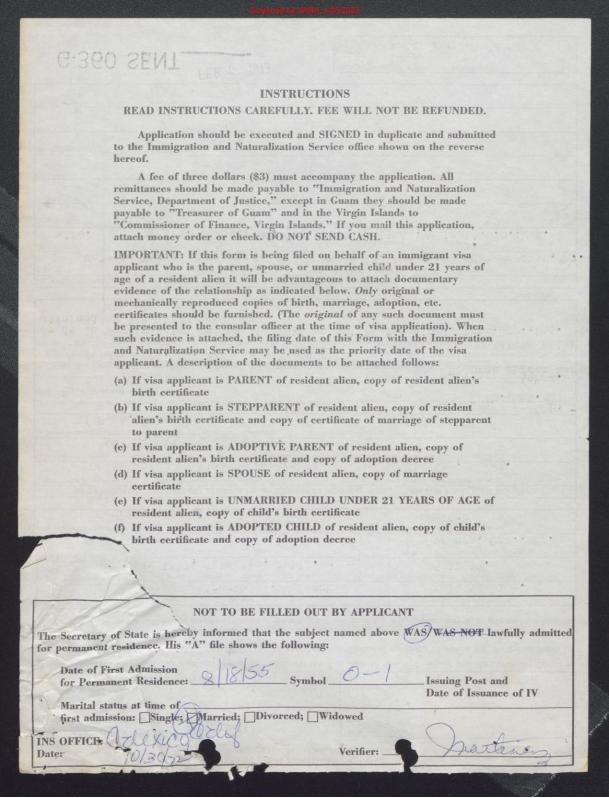 G-360 SENT
INSTRUCTIONS
READ INSTRUCTIONS CAREFULLY. FEE WILL NOT BE REFUNDED.
Application should be executed and SIGNED in duplicate and submitted
to the Immigration and Naturalization Service office shown on the reverse
hereof.
A fee of three dollars ($3) must accompany the application. All
remittances should be made payable to "Immigration and Naturalization
Service, Department of Justice," except in Guam they should be made
payable to "Treasurer of Guam" and in the Virgin Islands to
"Commissioner of Finance, Virgin Islands." If you mail this application,
attach money order or check. DO NOT SEND CASH.
IMPORTANT: If this form is being filed on behalf of an immigrant visa
applicant who is the parent, spouse, or unmarried child under 21 years of
age of a resident alien it will be advantageous to attach documentary
evidence of the relationship as indicated below. Only original or
mechanically reproduced copies of birth, marriage, adoption, etc.
certificates should be furnished. (The original of any such document must
be presented to the consular officer at the time of visa application). When
such evidence is attached, the filing date of this Form with the Immigration
and Naturalization Service may be used as the priority date of the visa
applicant. A description of the documents to be attached follows:
(a) If visa applicant is PARENT of resident alien, copy of resident alien's
birth certificate
(b) If visa applicant is STEPPARENT of resident alien, copy of resident
alien's birth certificate and copy of certificate of marriage of stepparent
to parent
(c) If visa applicant is ADOPTIVE PARENT of resident alien, copy of
resident alien's birth certificate and copy of adoption decree
(d) If visa applicant is SPOUSE of resident alien, copy of marriage
certificate
(e) If visa applicant is UNMARRIED CHILD UNDER 21 YEARS OF AGE of
resident alien, copy of child's birth certificate
(f) If visa applicant is ADOPTED CHILD of resident alien, copy of child's
birth certificate and copy of adoption decree
NOT TO BE FILLED OUT BY APPLICANT
The Secretary of State is hereby informed that the subject named above WAS/WAS NOT lawfully admitted
for permanent residence. His "A" file shows the following:
Date of First Admission
for Permanent Residence: 8/18/55 Symbol O-1 Issuing Post and
Date of Issuance of IV
Marital status at time of
first admission: Single; Married; Divorced; Widowed
INS OFFICE Calexico
Date: 10/30/72 Verifier: Martinez